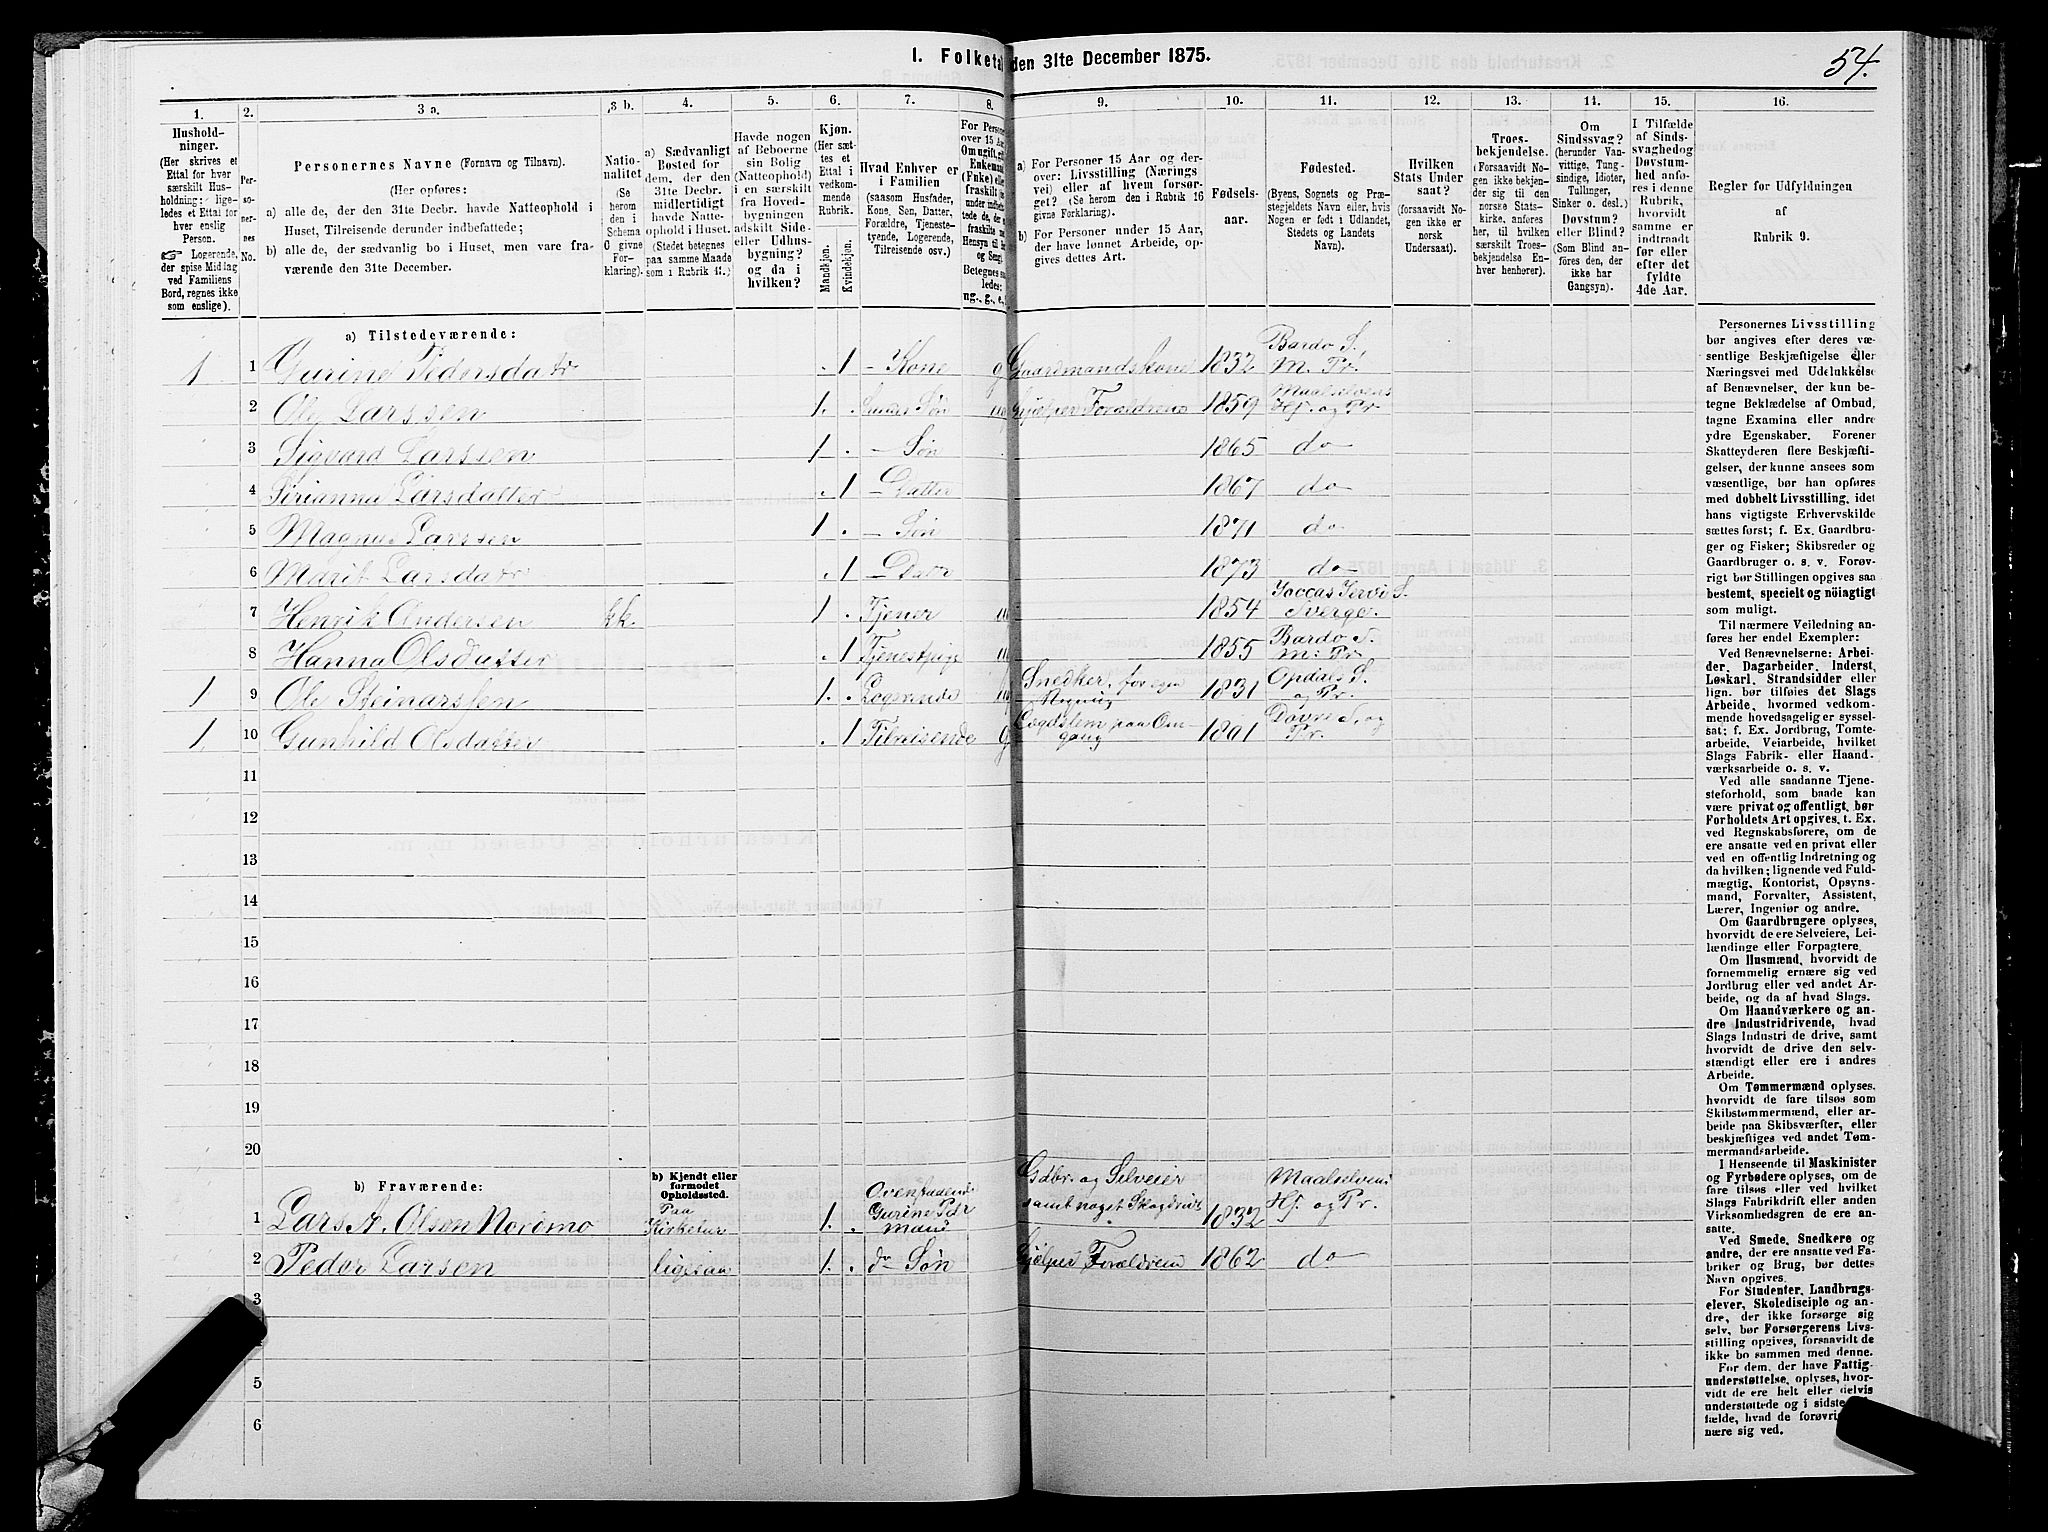 I. Folketal den 31te December 1875.
54.
1. 2. 3 a. 3 b. 4. 5. 6. 7. 8. 9. 10. 11. 12. 13. 14. 15. 16.
Hushold-
ninger.
(Her skrives et
Ettal for hver
særskilt Hus-
holdning; lige-
ledes et Ettal for
hver enslig
Person.
☞ Logerende,
der spise Middag
ved Familiens
Bord, regnes ikke
som enslige).
Per-
so-
ner-
nes
No.
Personernes Navne (Fornavn og Tilnavn).
(Her opføres:
a) alle de, der den 31te Decbr. havde Natteophold i
Huset, Tilreisende derunder indbefattede;
b) alle de, der sædvanlig bo i Huset, men vare fra-
værende den 31te December.
Natio-
nalitet
(Se
herom
den i
Schema
C givne
For-
klaring).
a) Sædvanligt
Bosted for
dem, der den
31te Decbr.
midlertidigt
havde Natte-
ophold i Huset.
(Stedet betegnes
paa samme Maade
som i Rubrik 11.)
Havde nogen
af Beboerne
sin Bolig
(Natteophold)
i en særskilt
fra Hoved-
bygningen
adskilt Side-
eller Udhus-
bygning?
og da i
hvilken?
Kjøn.
(Her sæt-
tes et
Ettal i
vedkom-
mende
Rubrik.
Mandkjøn.
Kvindekjøn.
Hvad Enhver er
i Familien
(saasom Husfader,
Kone, Søn, Datter,
Forældre, Tjeneste-
tyende, Logerende,
Tilreisende osv.).
For Personer
over 15 Aar:
Om ugift, gift,
Enkemand
(Enke) eller
fraskilt
Betegnes saa-
ledes:
ng., g., e.,
a) For Personer 15 Aar og der-
over: Livsstilling (Nærings-
vei) eller af hvem forsør-
get? (Se herom den i Rubrik 16
givne Forklaring).
b) For Personer under 15 Aar,
der have lønnet Arbeide, op-
gives dettes Art.
Fødsels-
aar.
Fødested.
(Byens, Sognets og Præ-
stegjeldets Navn eller, hvis
Nogen er født i Udlandet,
Stedets og Landets
Navn).
Hvilken
Stats Under-
saat?
(forsaavidt No-
gen ikke er
norsk
Undersaat).
Troes-
bekjendelse.
(Forsaavidt No-
gen ikke bekjen-
der sig til den
norske Stats-
kirke, anføres
her, til hvilken
særskilt Troes-
bekjendelse En-
hver henhører).
Om
Sindssvag?
(herunder Van-
vittige, Tung-
sindige, Idioter,
Tullinger,
Sinker o. desl.)
Døvstum?
eller Blind?
(Som Blind an-
føres den, der
ikke har
Gangsyn).
I Tilfælde
af Sinds-
svaghed og
Døvstum-
hed anføres
i denne
Rubrik,
hvorvidt
samme er
indtraadt
før eller
efter det
fyldte
4de Aar.
Regler for Udfyldningen
af
Rubrik 9.
a) Tilstedeværende:
1 1 Gurine Pedersdatr 1 - Kone g Gaardmandskone 1832 Bardo S. M. Pr.
2 Ole Larssen 1. Søn Hjelper Forældrene 1859 Maalselvens Hf. og Pr.
3 Sigvard Larssen 1 - Søn 1865 do
4 Larsdatter 1 - Datter 1867 do
5 Magnus Larssen 1 - Søn 1871 do
6 Marit Larsdatr 1 - Datr 1873 do
7 Henrik Andersen kk. 1 Tjener 1854 S. Sverge.
8 Hanna Olsdatter 1 Tjenestpige 1855 Bardo S. M. Pr
1 9 Ole Steinarssen 1. Logerende Snedker, for egen Regning 1831 Opdals S. og Pr.
1 10 Gunhild Olsdatter 1 Tilreisende Lægdslem paa Omgang 1801 Dovre S. og Pr.
11
12
13
14
15
16
17
18
19
20
b) Fraværende:
b) Kjendt eller
formodet
Opholdssted.
1 Lars A. Olsen Nordmo Paa Kirketur 1. Ovenstaaende Gurine Pdr mand Gdbr. og Selveier samt noget Skogdrift 1832 Maalselvens Hf. og Pr.
2 Peder Larsen ligesaa 1. do Søn Hjelper Forældrene 1862 do
3
4
5
6
Personernes Livsstilling
bør angives efter deres væ-
sentlige Beskjæftigelse eller
Næringsvei med Udelukkelse
af Benævnelser, der kun be-
tegne Beklædelse af Ombud,
tagne Examina eller andre
ydre Egenskaber. Forener
Skatteyderen flere Beskjæfti-
gelser, der kunne ansees som
væsentlige, bør han opføres
med dobbelt Livsstilling, idet
hans vigtigste Erhvervskilde
sættes først; f. Ex. Gaardbru-
ger og Fisker; Skibsreder og
Gaardbruger o. s. v. Forøv-
rigt bør Stillingen opgives saa
bestemt, specielt og nøiagtigt
som muligt.
Til nærmere Veiledning an-
føres her endel Exempler:
Ved Benævnelserne: Arbei-
der, Dagarbeider, Inderst,
Løskarl, Strandsidder eller
lign. bør tilføies det Slags
Arbeide, hvormed vedkom-
mende hovedsagelig er syssel-
sat; f. Ex. Jordbrug, Tomte-
arbeide, Veiarbeide, hvilket
Slags Fabrik- eller Haand-
værksarbeide o. s. v.
Ved alle saadanne Tjene-
steforhold, som baade kan
være privat og offentligt, bør
Forholdets Art opgives, t. Ex.
ved Regnskabsførere, om de
ere ansatte ved en privat eller
ved en offentlig Indretning og
da hvilken; lignende ved Fuld-
mægtig, Kontorist, Opsyns-
mand, Forvalter, Assistent,
Lærer, Ingeniør og andre.
Om Gaardbrugere oplyses,
hvorvidt de ere Selveiere, Lei-
lændinge eller Forpagtere.
Om Husmænd, hvorvidt de
fornemmelig ernære sig ved
Jordbrug eller ved andet Ar-
beide, og da af hvad Slags.
Om Haandværkere og an-
dre Industridrivende, hvad
Slags Industri de drive, samt
hvorvidt de drive den selv-
stændigt eller ere i andres
Arbeide.
Om Tømmermænd oplyses,
hvorvidt de fare tilsøs som
Skibstømmermænd, eller ar-
beide paa Skibsværfter, eller
beskjæftiges ved andet Tøm-
mermandsarbeide.
I Henseende til Maskinister
og Fyrbødere oplyses, om de
fare tilsøs eller ved hvilket
Slags Fabrikdrift eller anden
Virksomhedsgren de ere an-
satte.
Ved Smede, Snedkere og
andre, der ere ansatte ved Fa-
briker og Brug, bør dettes
Navn opgives.
For Studenter, Landbrugs-
elever, Skoledisciple og an-
dre, der ikke forsørge sig
selv, bør Forsørgerens Livs-
stilling opgives, forsaavidt de
ikke bo sammen med denne.
For dem, der have Fattig-
understøttelse, oplyses, hvor-
vidt de ere helt eller delvis
understøttede og i sidste
fælde, hvad de forøvri
nære sig ved.